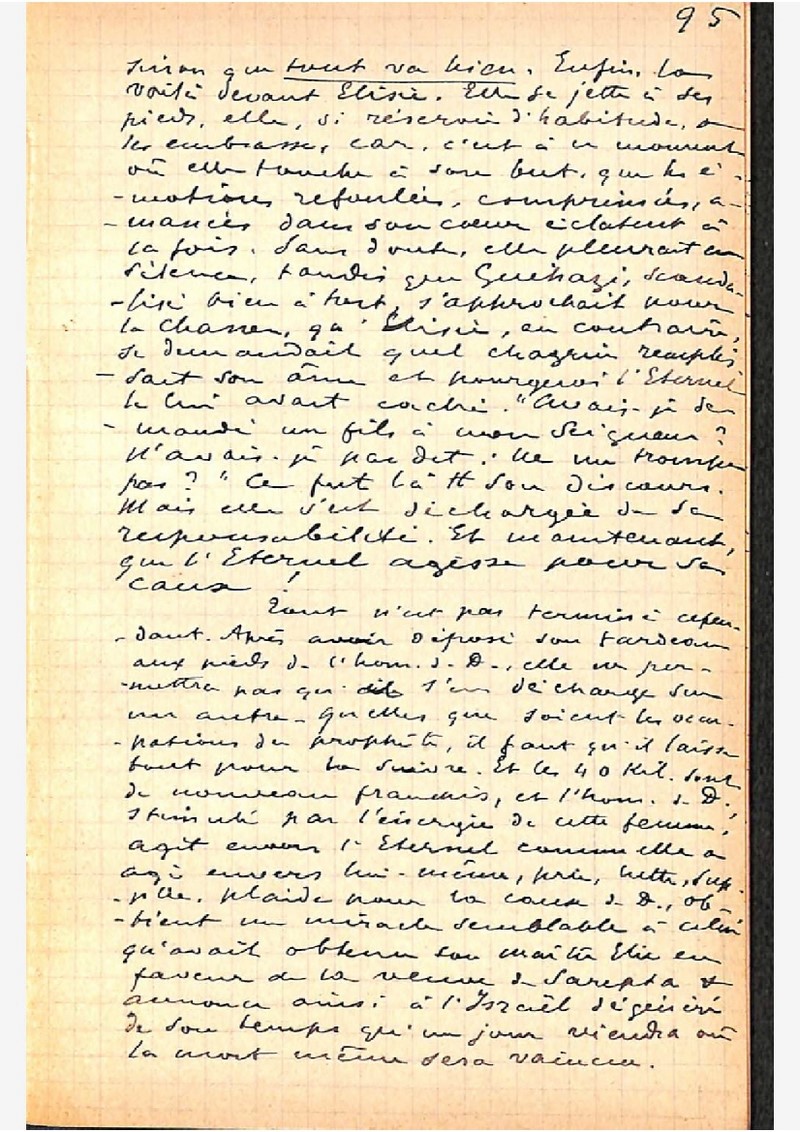 95
sinon que tout va bien. Enfin, la
voilà devant Elisée. Elle se jette à ses
pieds, elle, si réservée d'habitude, et
les embrasse, car, c'est à ce moment
où elle touche à son but, que les é-
-motions refoulées, comprimées, a-
-massées dans son cœur éclatent à
la fois. Sans doute, elle pleurait en
silence, tandis que Guéhazi, scanda-
-lisé bien à tort, s'approchait pour
la chasser, qu'Elisée, au contraire,
se demandait quel chagrin remplis-
-sait son âme et pourquoi l'Eternel
le lui avait caché. "Avais-je de-
-mandé un fils à mon Seigneur?
N'avais-je pas dit: Ne me trompe
pas?" Ce fut là tt son discours.
Mais elle s'est déchargée de sa
responsabilité. Et maintenant,
que l'Eternel agisse pour sa
cause!
Tout n'est pas terminé cepen-
-dant. Après avoir déposé son fardeau
aux pieds de l'hom. d. D., elle ne per-
-mettra pas qu'il s'en décharge sur
un autre. Quelles que soient les occu-
-pations du prophète, il faut qu'il laisse
tout pour la suivre. Et les 40 Kil. sont
de nouveau franchis, et l'hom. d. D.,
stimulé par l'énergie de cette femme,
agit envers l'Eternel comme elle a
agi envers lui-même, prie, lutte, sup-
-plie, plaide pour la cause d. D., ob-
-tient un miracle semblable à celui
qu'avait obtenu son maître Elie en
faveur de la veuve de Sarepta &
annonce ainsi à l'Israël dégénéré
de son temps qu'un jour viendra où
la mort même sera vaincue.